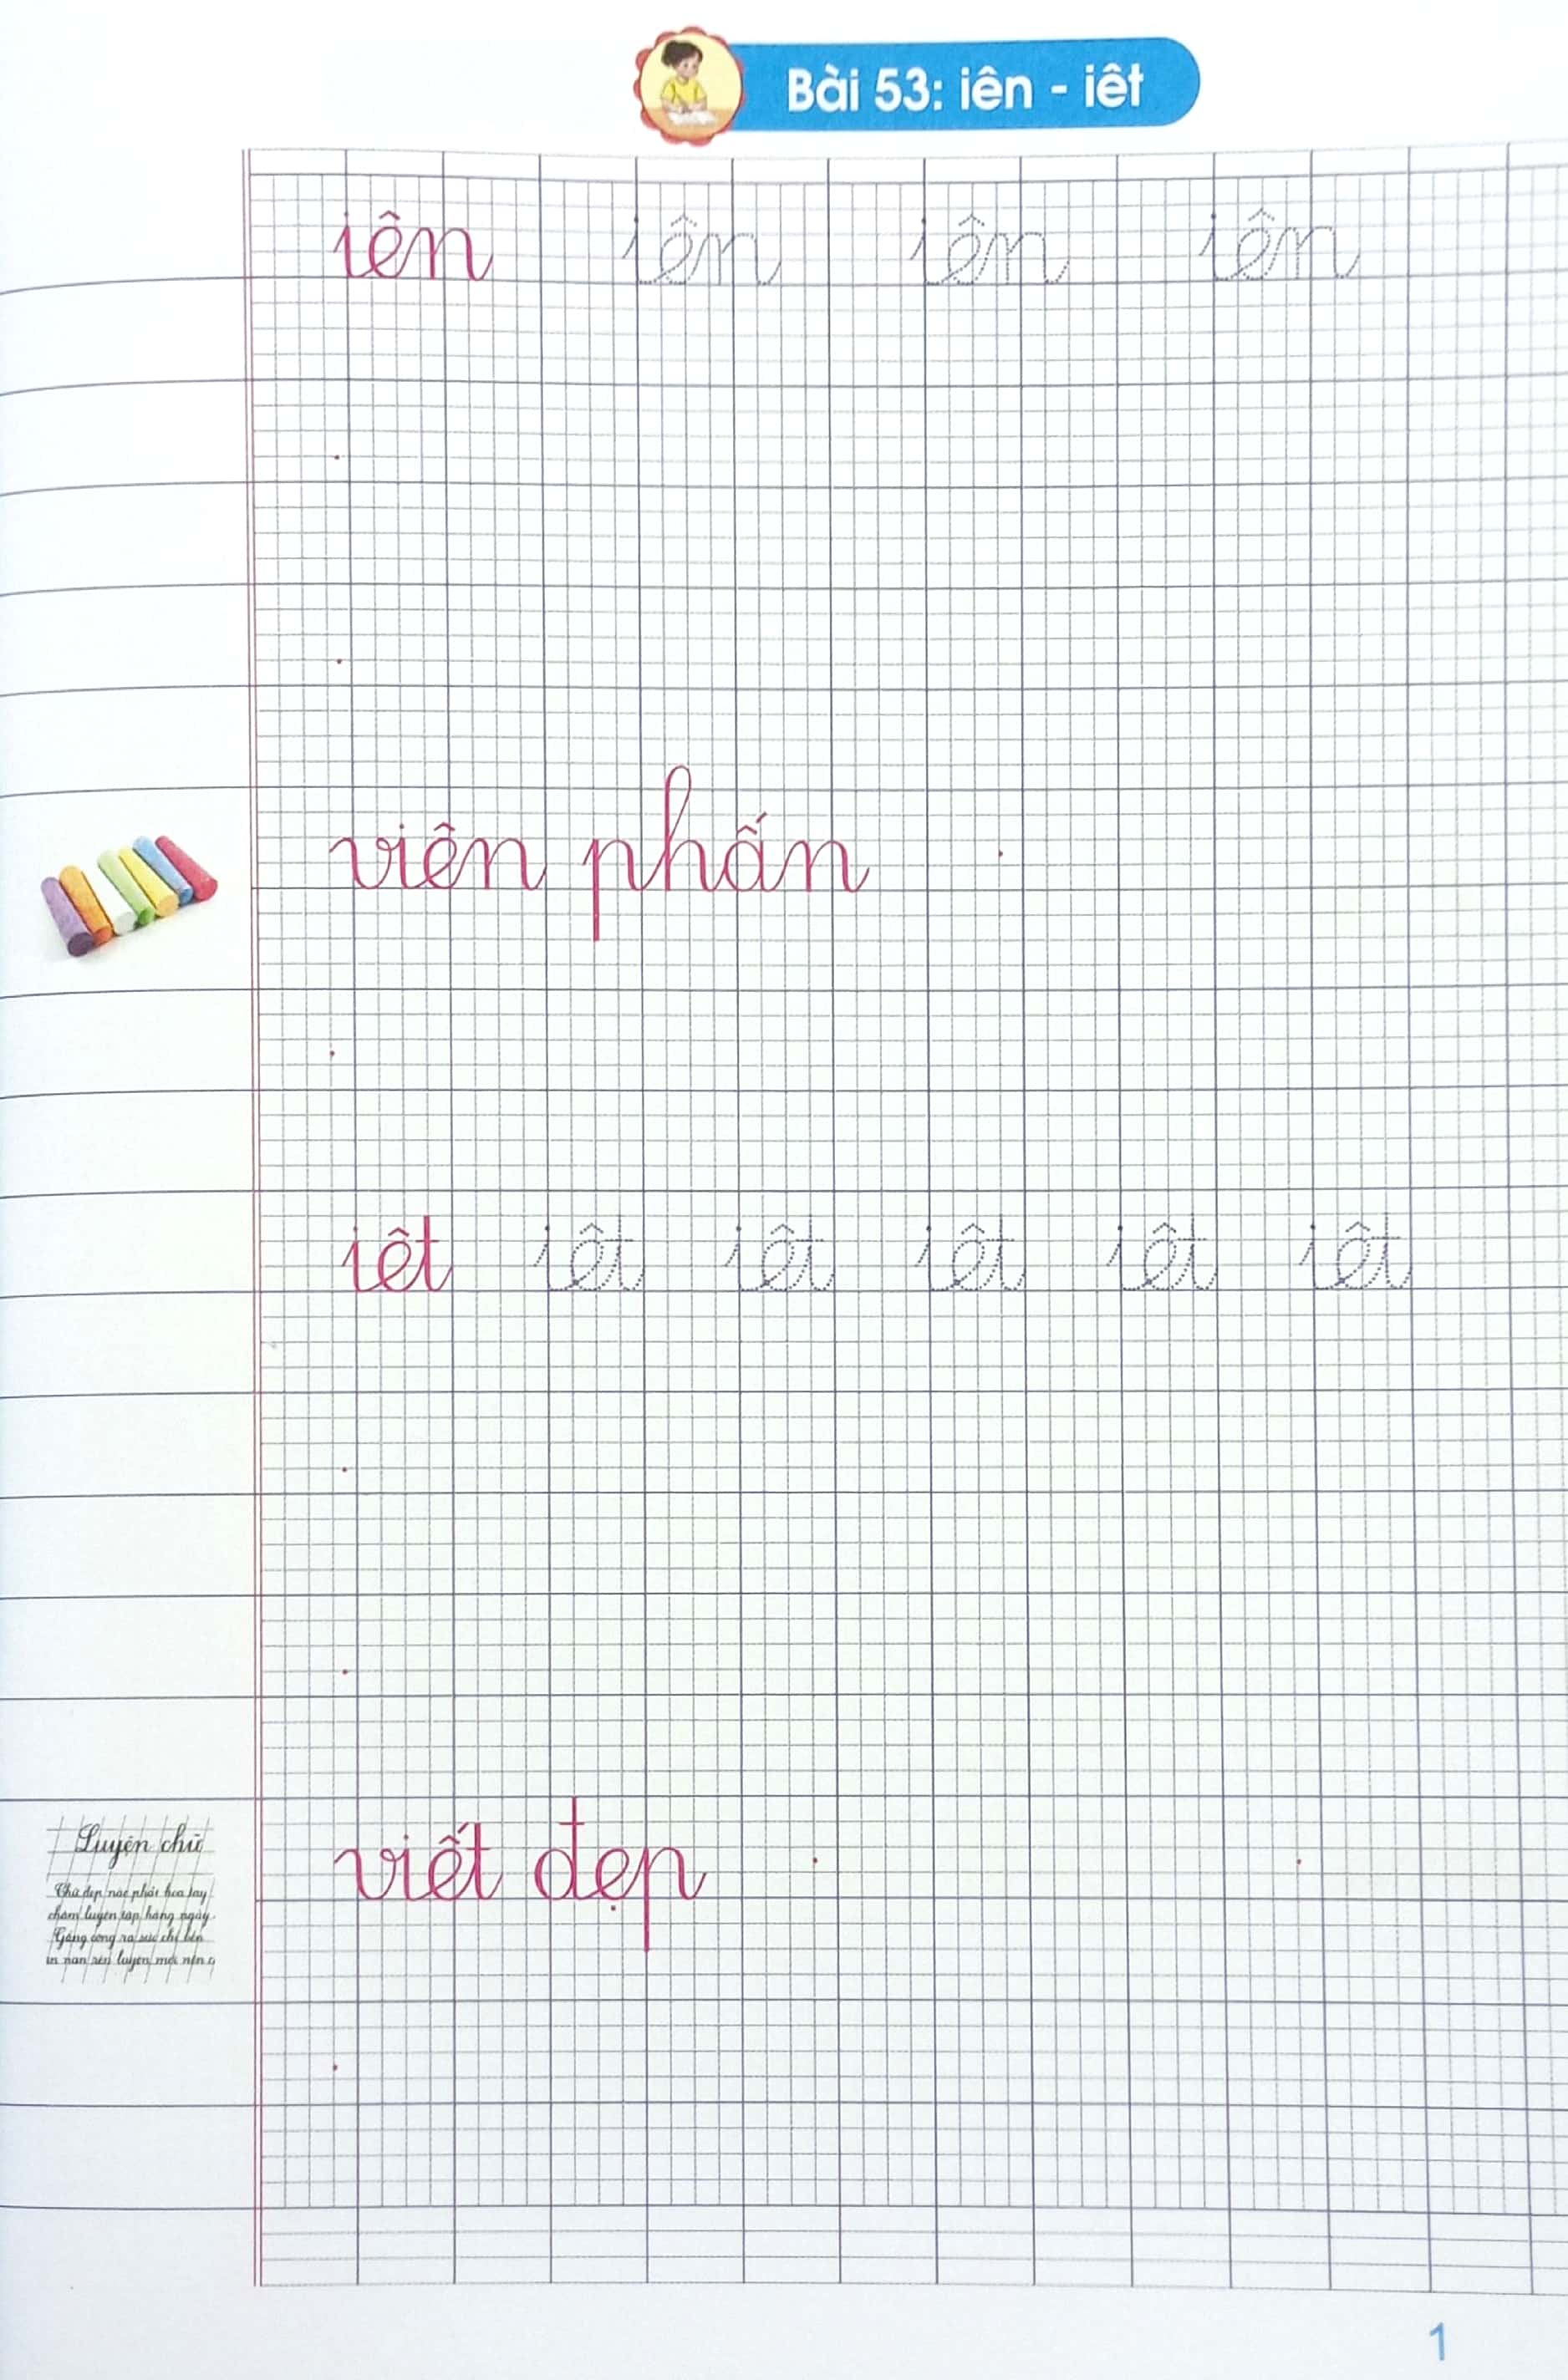 Bài 53: iên - iêt
iên iên iên iên
viên phấn
iêt iêt iêt iêt iêt iêt
viết đẹp
Luyện chữ
Chữ đẹp nào phải hoa tay
chăm luyện tập hàng ngày
Gắng công ra sức chí bền
luyện mới nên
1